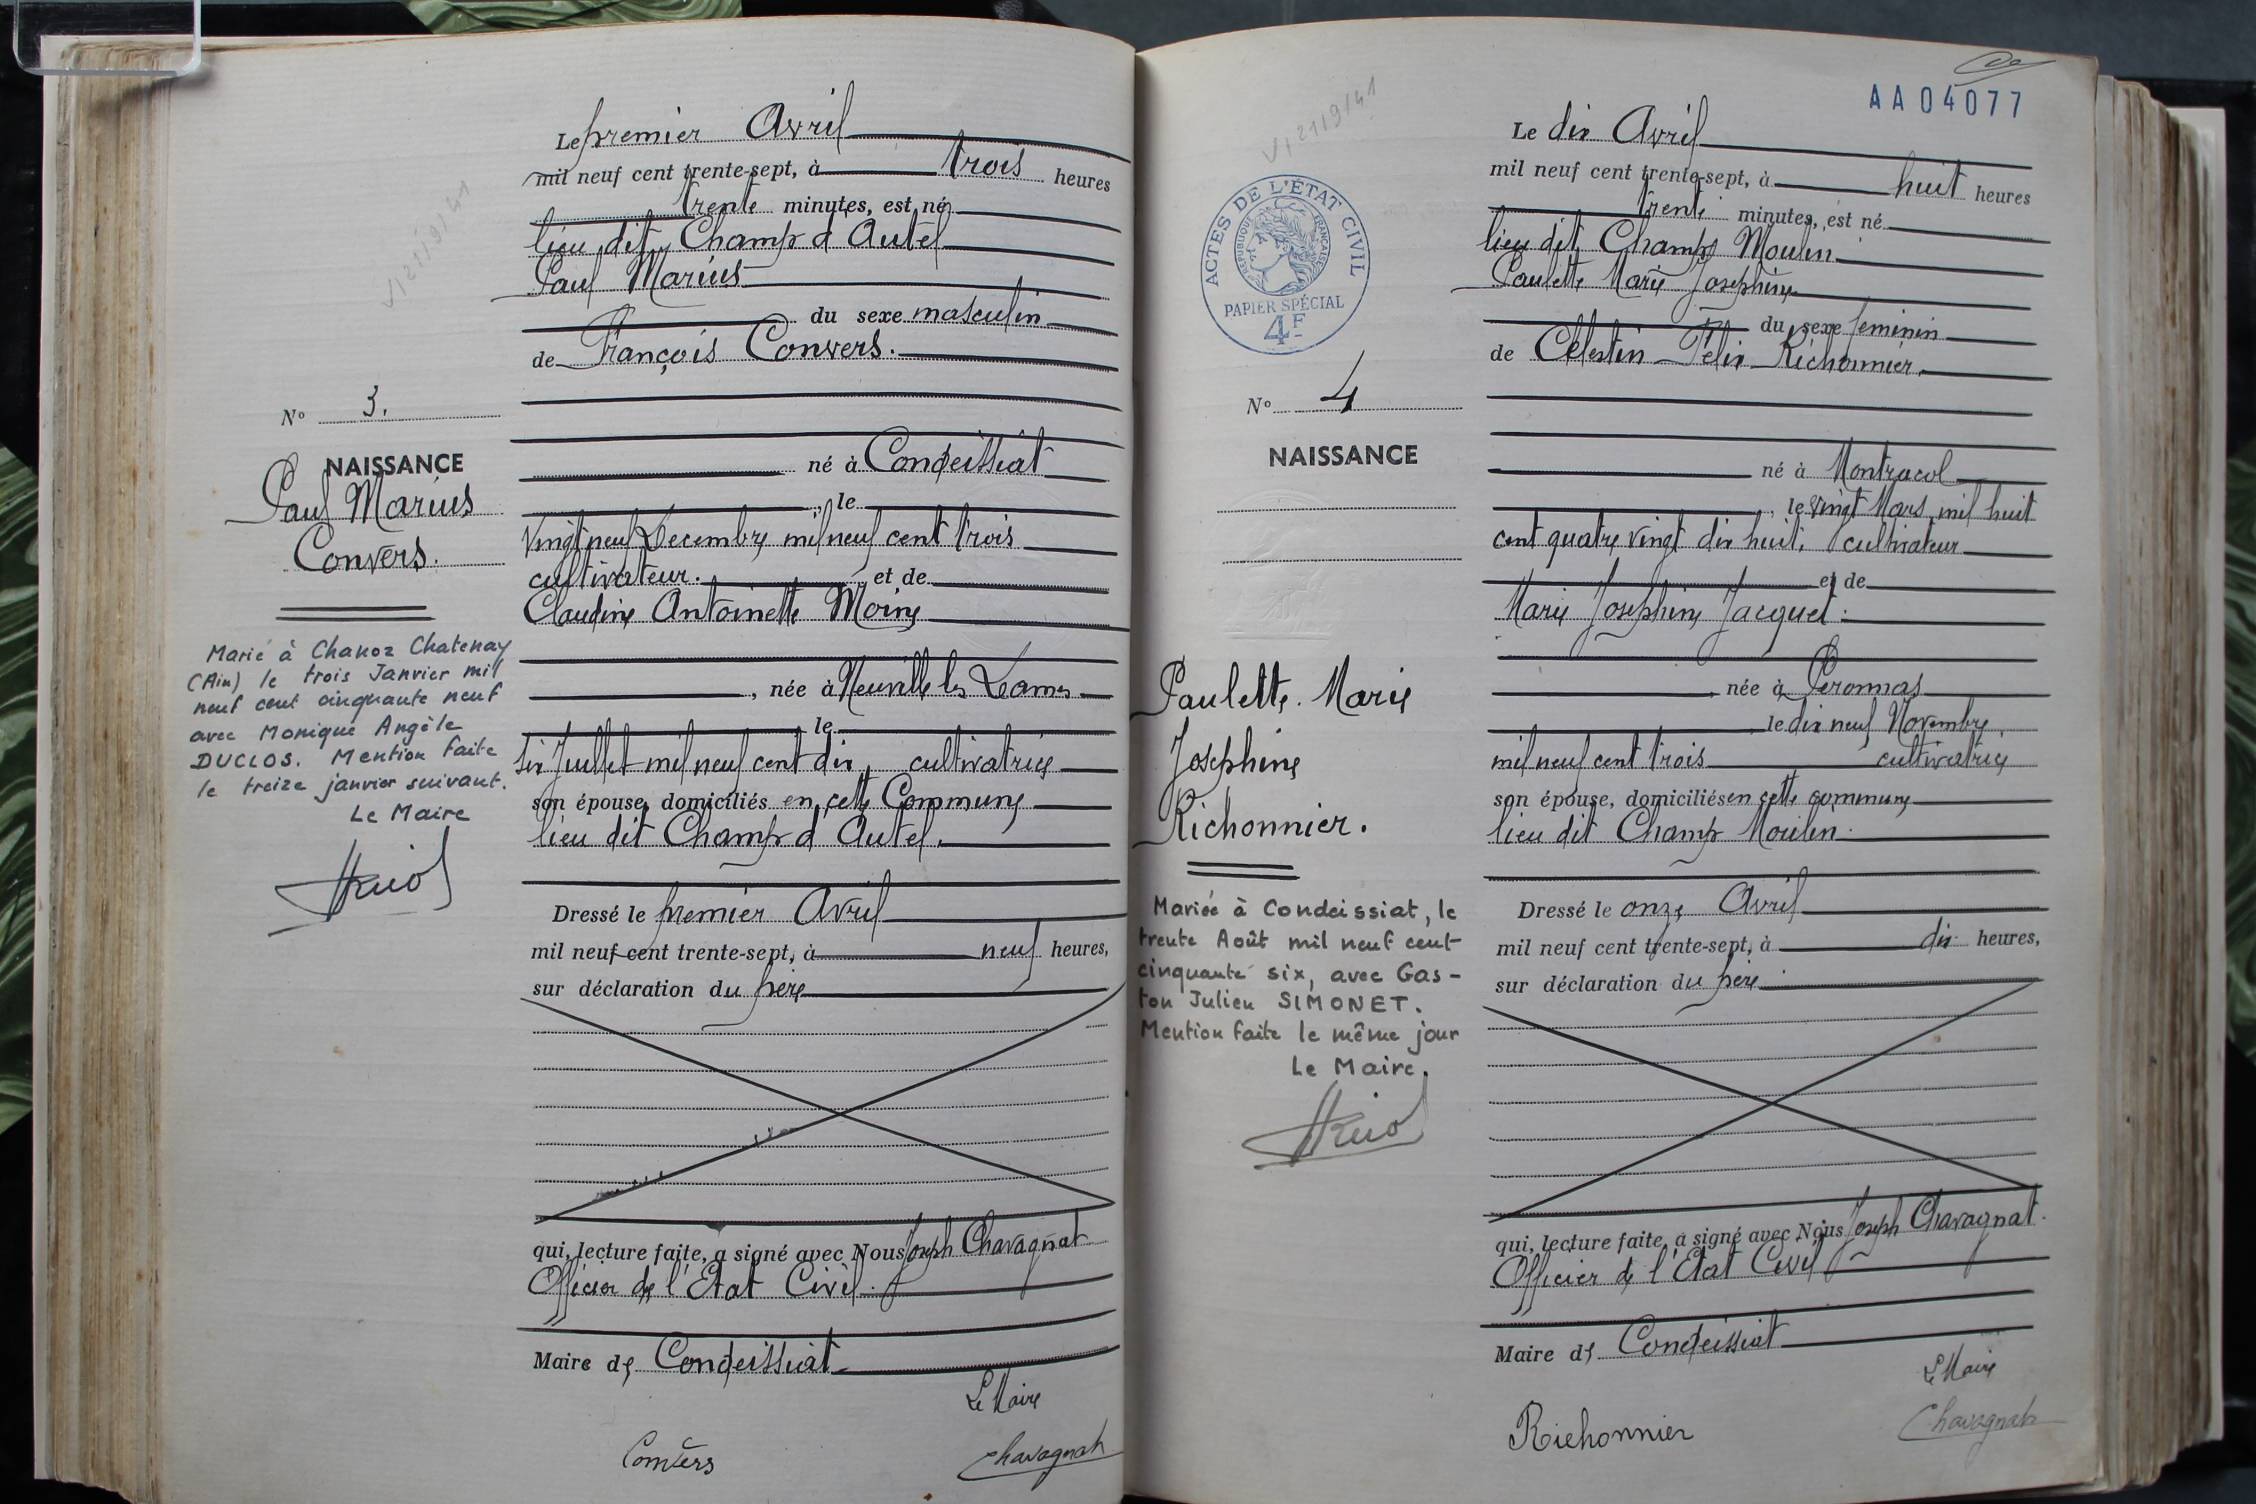 Le premier Avril
mil neuf cent trente-sept, à trois heures
trente minutes, est né
lieu dit Champ d'Autel
Paul Marius
du sexe masculin
de François Convers.
né à Condeissiat
, le
vingt neuf Decembre mil neuf cent trois
cultivateur. et de
Claudine Antoinette Moine
, née à Neuville les Dames
le
six Juillet mil neuf cent dix, cultivatrice
son épouse, domiciliés en cette Commune
lieu dit Champ d'Autel.
Dressé le premier Avril
mil neuf cent trente-sept, à neuf heures,
sur déclaration du père
qui, lecture faite, a signé avec Nous Joseph Chavagnat
Officier de l'Etat Civil.
Maire de Condeissiat
Le Maire
Convers
Chavagnat
V, 21/9/41
No 3.
NAISSANCE
Paul Marius
Convers.
Marié à Chanoz Chatenay
(Ain) le trois Janvier mil
neuf cent cinquante neuf
avec Monique Angèle
DUCLOS. Mention faite
le treize janvier suivant.
Le Maire
AA04077
Le dix Avril
mil neuf cent trente-sept, à huit heures
trente minutes, est né
lieu dit Champ Moulin
Paulette Marie Josephine
du sexe feminin
de Célestin Félix Richonnier.
né à Montracol
, le vingt Mars mil huit
cent quatre vingt dix huit, cultivateur
et de
Marie Josephine Jacquet.
née à Peronnas
le dix neuf Novembre
mil neuf cent trois cultivatrice
son épouse, domiciliés en cette commune
lieu dit Champ Moulin.
Dressé le onze Avril
mil neuf cent trente-sept, à dix heures,
sur déclaration du père
qui, lecture faite, a signé avec Nous Joseph Chavagnat.
Officier de l'Etat Civil
Maire de Condeissiat
Le Maire
Richonnier
Chavagnat
V, 21/9/41
ACTES DE L'ÉTAT CIVIL
RÉPUBLIQUE FRANÇAISE
PAPIER SPÉCIAL
4F
No 4
NAISSANCE
Paulette Marie
Josephine
Richonnier.
Mariée à Condeissiat, le
trente Août mil neuf cent
cinquante six, avec Gas-
ton Julien SIMONET.
Mention faite le même jour
Le Maire.